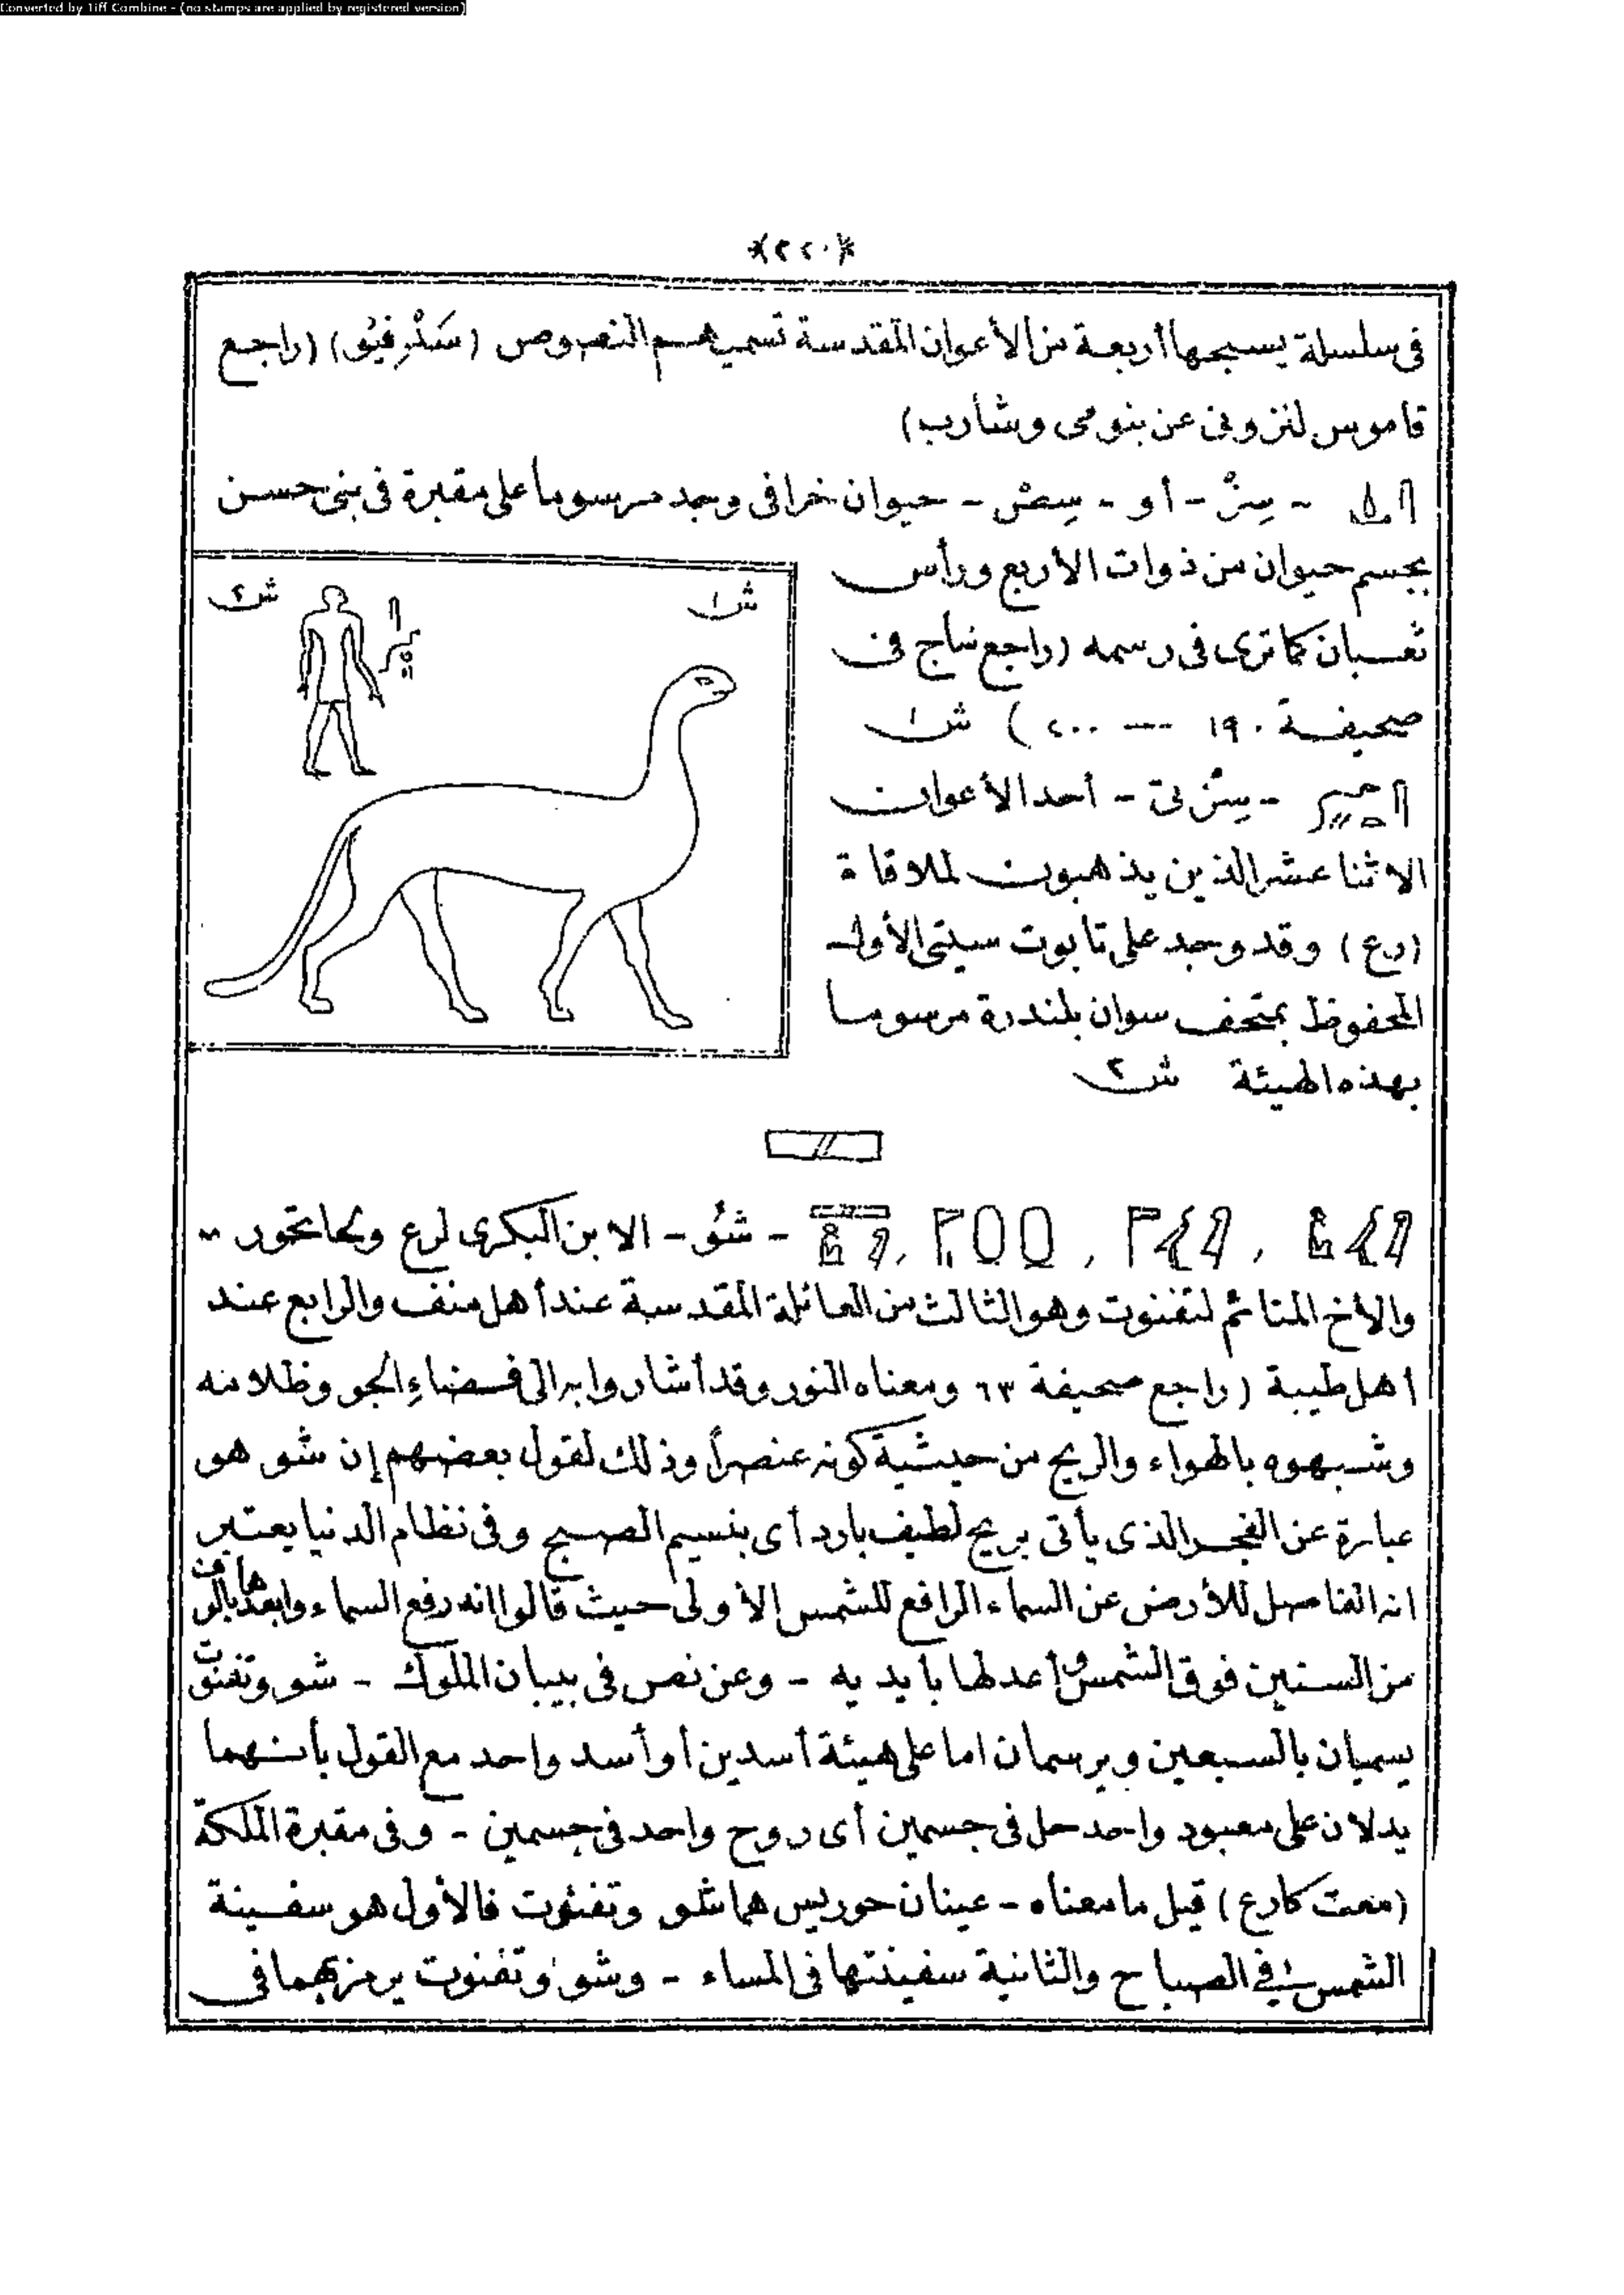 Converted by Tiff Combine - (no stamps are applied by registered version)
*(٢٢٠)*
فى سلسلة يسحبها أربعة من الأعوان المقدسة تسميهم النصوص (سَدْرِفيُو) (راجع
قاموس لنزونى عن بنومى وشارب)
- سِتْ - أو - سِصْ - حيوان خرافى وجد مرسوما على مقبرة فى بنى حسن
بجسم حيوان من ذوات الأربع ورأس
ثعبان كما ترى فى رسمه (راجع ساج فى
صحيفة ١٩٠ --- ٢٠٠) ش١
- سِتْ تى - أحد الأعوان
الاثنا عشر الذين يذهبون لملاقاة
(رع) وقد وجد على تابوت سيتى الأول
المحفوظ بمتحف سوان بلندرة مرسوما
بهذه الهيئة ش٢
ش١
ش٢
- شُو - الابن البكرى لرع ولحاتحور -
والأخ المتائم لتفنوت وهو الثالث من العائلة المقدسة عند أهل منف والرابع عند
أهل طيبة (راجع صحيفة ٦٣ ومعناه النور وقد أشاروا به الى فضاءِ الجو وظلامه
وشبهوه بالهواء والريح من حيثية كونه عنصراً وذلك لقول بعضهم إن شو هو
عبارة عن الفجر الذى يأتى بريح لطيف بارد أى بنسيم الصبح وفى نظام الدنيا يعتبر
انه الفاصل للأرض عن السماء الرافع للشمس الأولى حيث قالوا انه رفع السماء وابعدها بالوف
من السنين فوق الشمس وأعدلها بأيديه - وعن نص فى بيبان الملوك - شو وتفنوت
يسميان بالسبعين ويرسمان اما على هيئة أسدين أو أسد واحد مع القول بأنهما
يدلان على معبود واحد حل فى جسمين أى روح واحد فى جسمين - وفى مقبرة الملكة
(معت كارع) قيل ما معناه - عينان حوريس هما شو وتفنوت فالأول هو سفينة
الشمس فى الصباح والثانية سفينتها فى المساء - وشو وتفنوت يرمز بهما فى